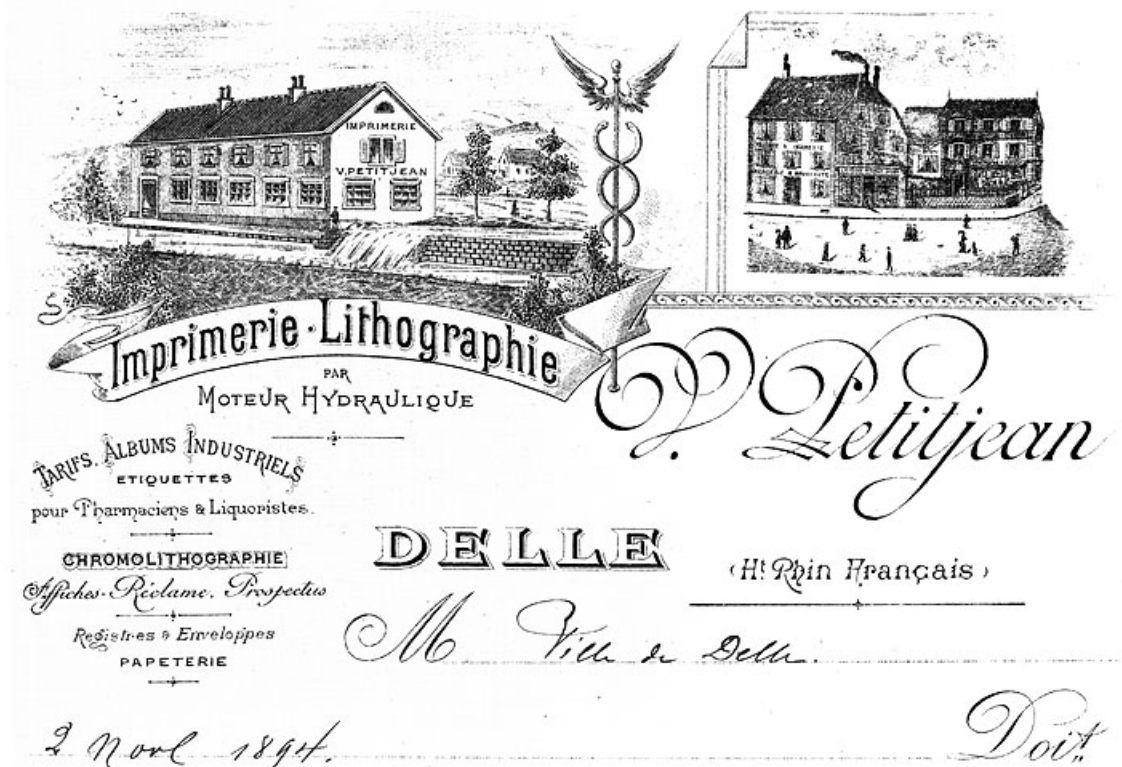 IMPRIMERIE
V. PETITJEAN
Imprimerie - Lithographie
PAR
MOTEUR HYDRAULIQUE
V. Petitjean
TARIFS, ALBUMS INDUSTRIELS
ETIQUETTES
pour Pharmaciens & Liquoristes.
CHROMOLITHOGRAPHIE
Affiches-Réclame, Prospectus
Registres & Enveloppes
PAPETERIE
DELLE
(Ht Rhin Français)
M Ville de Delle.
2 Novl 1894.
Doit